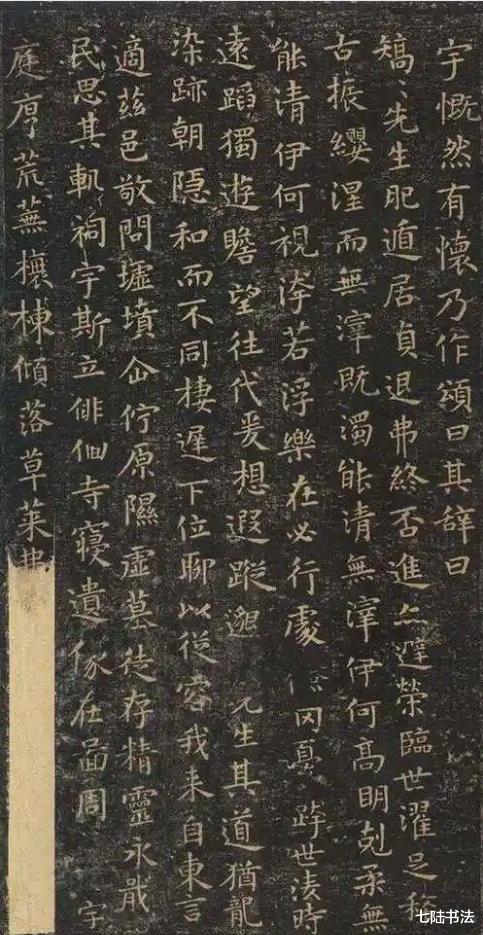 宇慨然有懷乃作頌曰其辭曰
矯〻先生肥遁居貞退弗終否進亦避榮臨世濯足稀
古振纓涅而無滓既濁能清無滓伊何高明剋柔無
能清伊何視洿若浮樂在必行處儉罔憂跨世淩時
遠蹈獨遊瞻望往代爰想遐蹤邈先生其道猶龍
染跡朝隱和而不同棲遲下位聊以從容我来自東言
適茲邑敬問墟墳企佇原隰虛墓徒存精靈永戢
民思其軌祠宇斯立俳佪寺寢遺像在啚周宇
庭序荒蕪榱棟傾落草萊弗
七陆书法